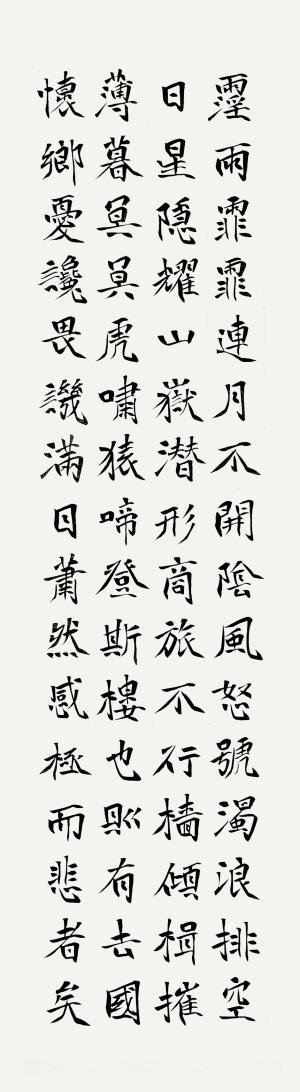 霪雨霏霏連月不開陰風怒號濁浪排空
日星隱耀山嶽潜形商旅不行檣傾楫摧
薄暮冥冥虎嘯猿啼登斯樓也則有去國
懷鄉憂讒畏譏滿目蕭然感極而悲者矣